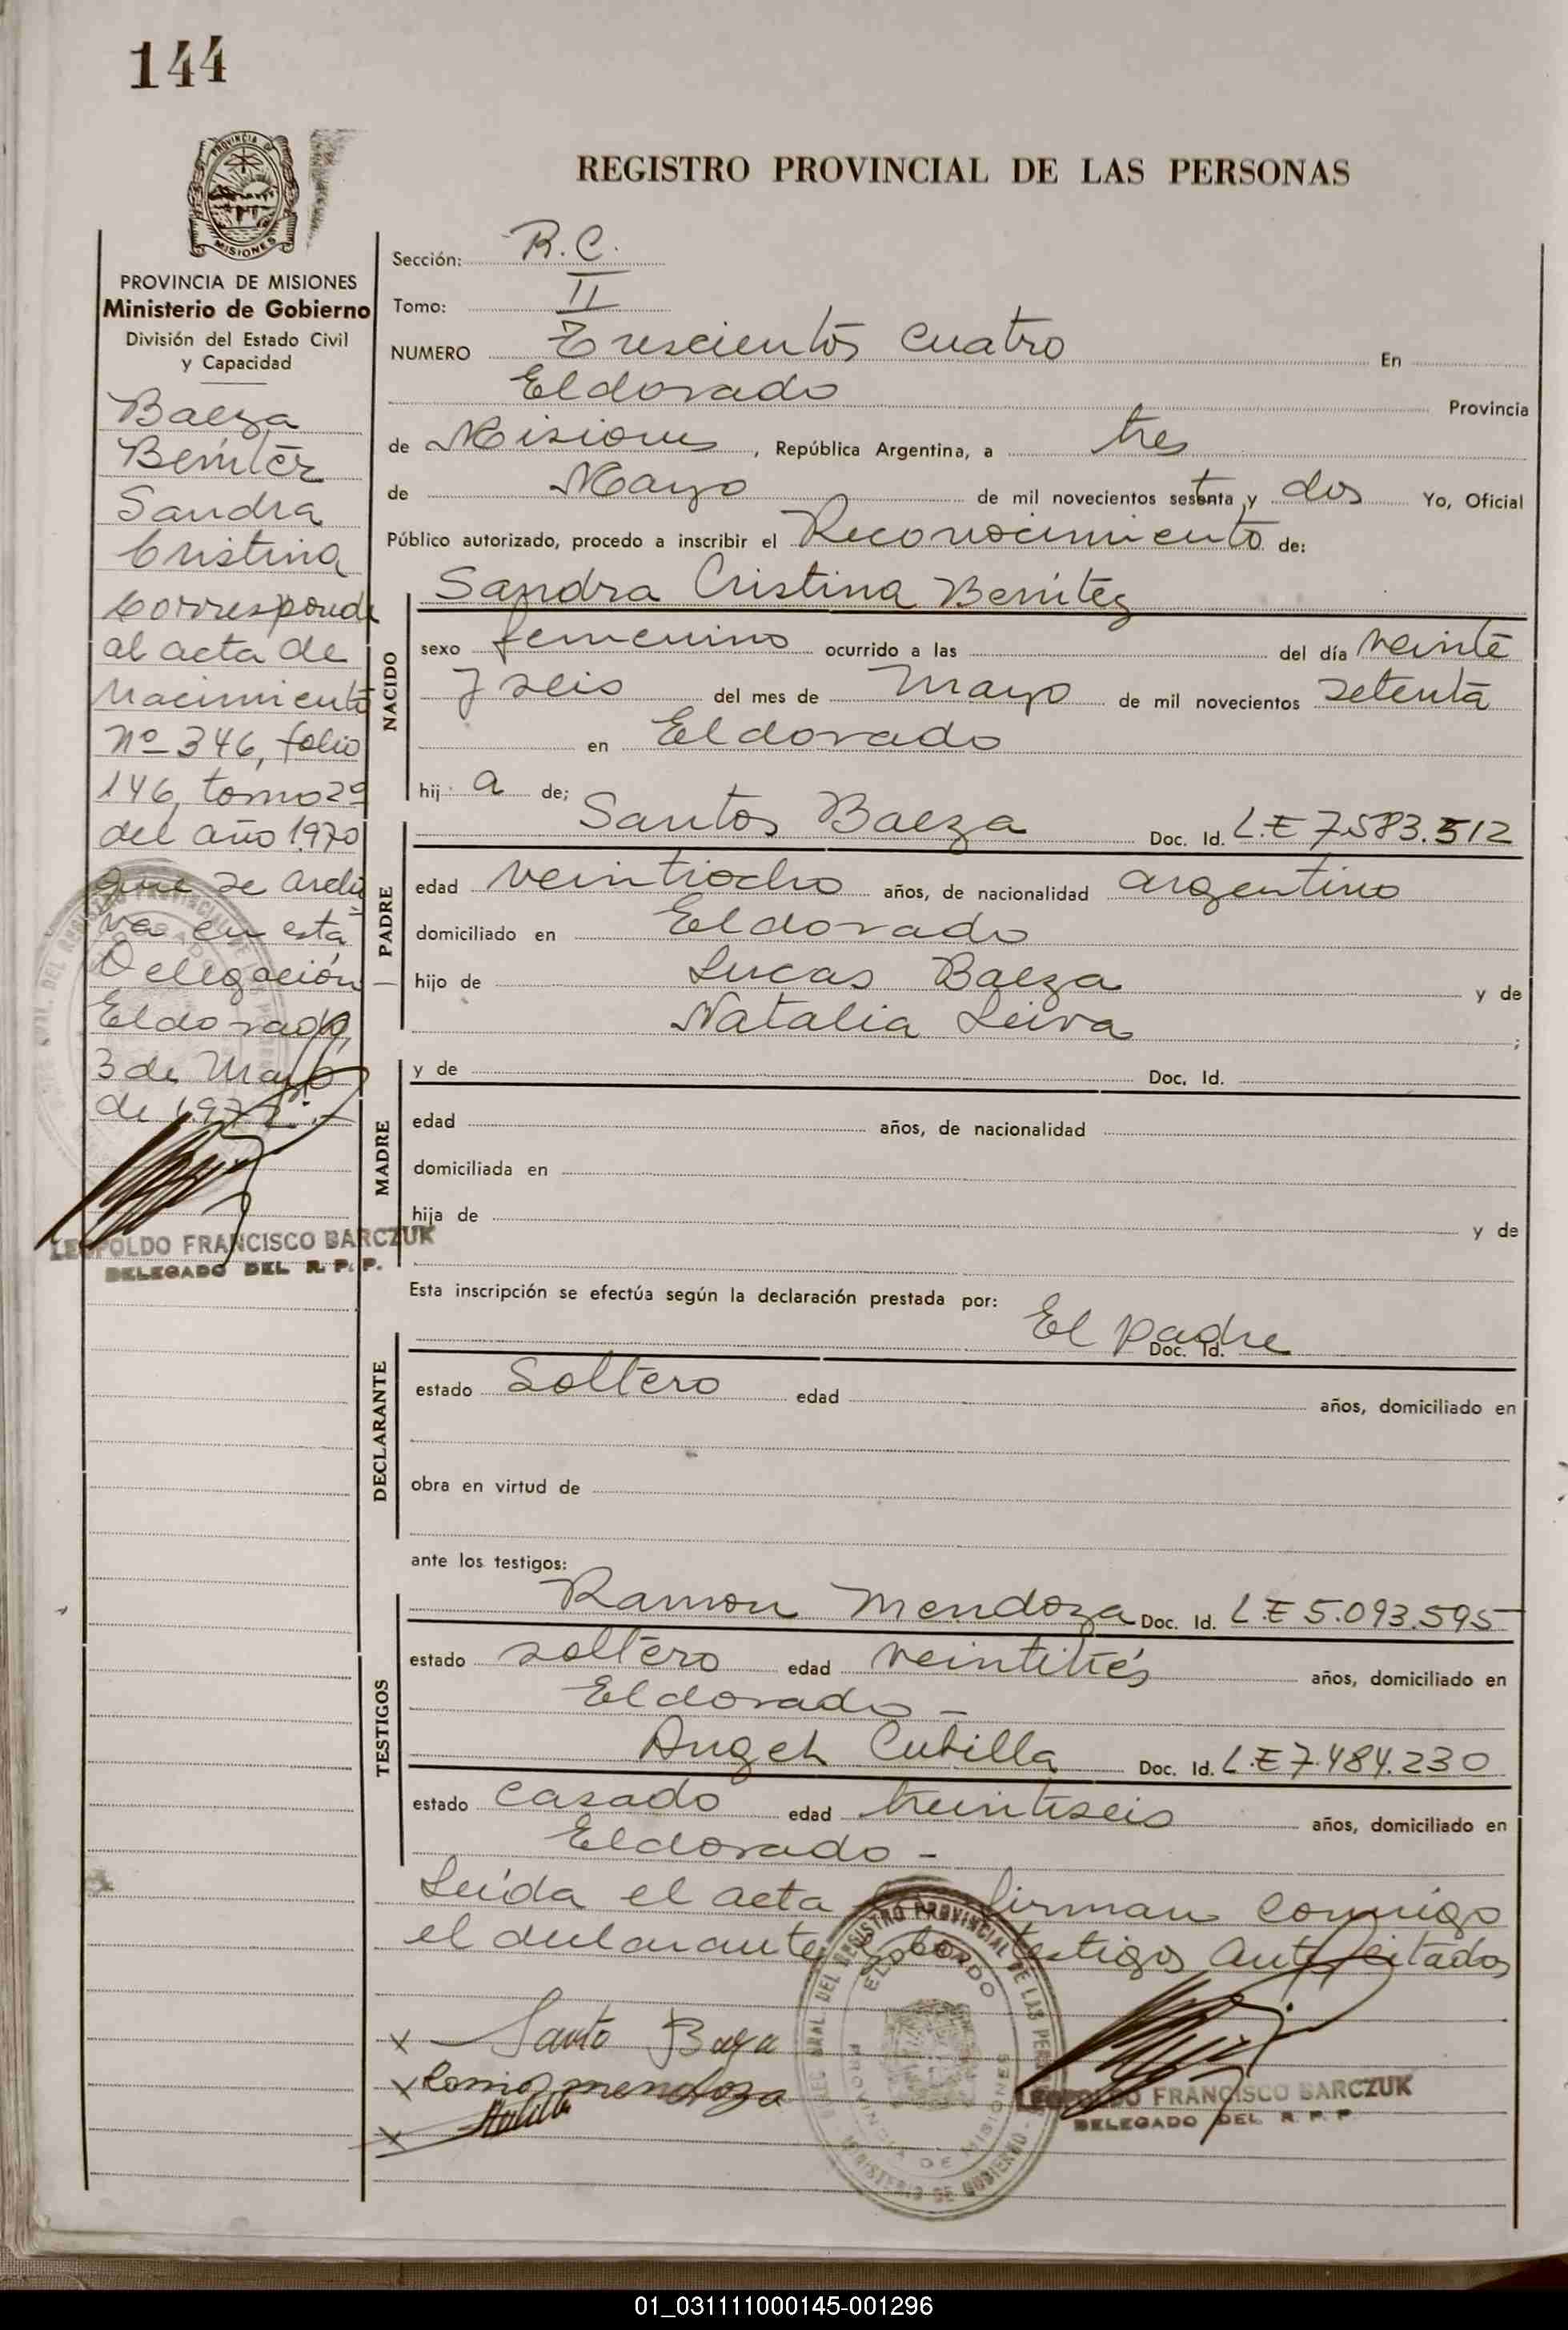 144
PROVINCIA DE
MISIONES
REGISTRO PROVINCIAL DE LAS PERSONAS
PROVINCIA DE MISIONES
Ministerio de Gobierno
División del Estado Civil
y Capacidad
Baeza
Benítez
Sandra
Cristina
Corresponde
al acta de
Nacimiento
Nº 346, folio
146, tomo 2º
del año 1970
que se archi
va en esta
Delegación
Eldorado,
3 de Mayo
de 1972.-
LEOPOLDO FRANCISCO BARCZUK
DELEGADO DEL R. P. P.
Sección: R.C.
Tomo: II
NUMERO Trescientos cuatro En
Eldorado Provincia
de Misiones, República Argentina, a tres
de Mayo de mil novecientos setenta y dos Yo, Oficial
Público autorizado, procedo a inscribir el Reconocimiento de:
Sandra Cristina Benítez
NACIDO
sexo femenino ocurrido a las del día veinte
y seis del mes de mayo de mil novecientos setenta
en Eldorado
hij a de;
PADRE
Santos Baeza Doc. Id. L.E 7.583.512
edad veintiocho años, de nacionalidad argentino
domiciliado en Eldorado
hijo de Lucas Baeza y de
Natalia Leiva ;
MADRE
y de Doc. Id.
edad años, de nacionalidad
domiciliada en
hija de y de
Esta inscripción se efectúa según la declaración prestada por:
DECLARANTE
El padre Doc. Id.
estado Soltero edad años, domiciliado en
obra en virtud de
ante los testigos:
TESTIGOS
Ramon Mendoza Doc. Id. L.E 5.093.595
estado soltero edad veintitrés años, domiciliado en
Eldorado -
Angel Cubilla Doc. Id. L.E 7.484.230
estado casado edad treintiseis años, domiciliado en
Eldorado -
Leída el acta firman conmigo
el declarante y los testigos antes citados
Santo Baza
Mendoza
DEL REGISTRO PROVINCIAL DE LAS PERSONAS
ELDORADO
PROVINCIA DE MISIONES
MINISTERIO DE GOBIERNO
LEOPOLDO FRANCISCO BARCZUK
DELEGADO DEL R. P. P.
01_031111000145-001296